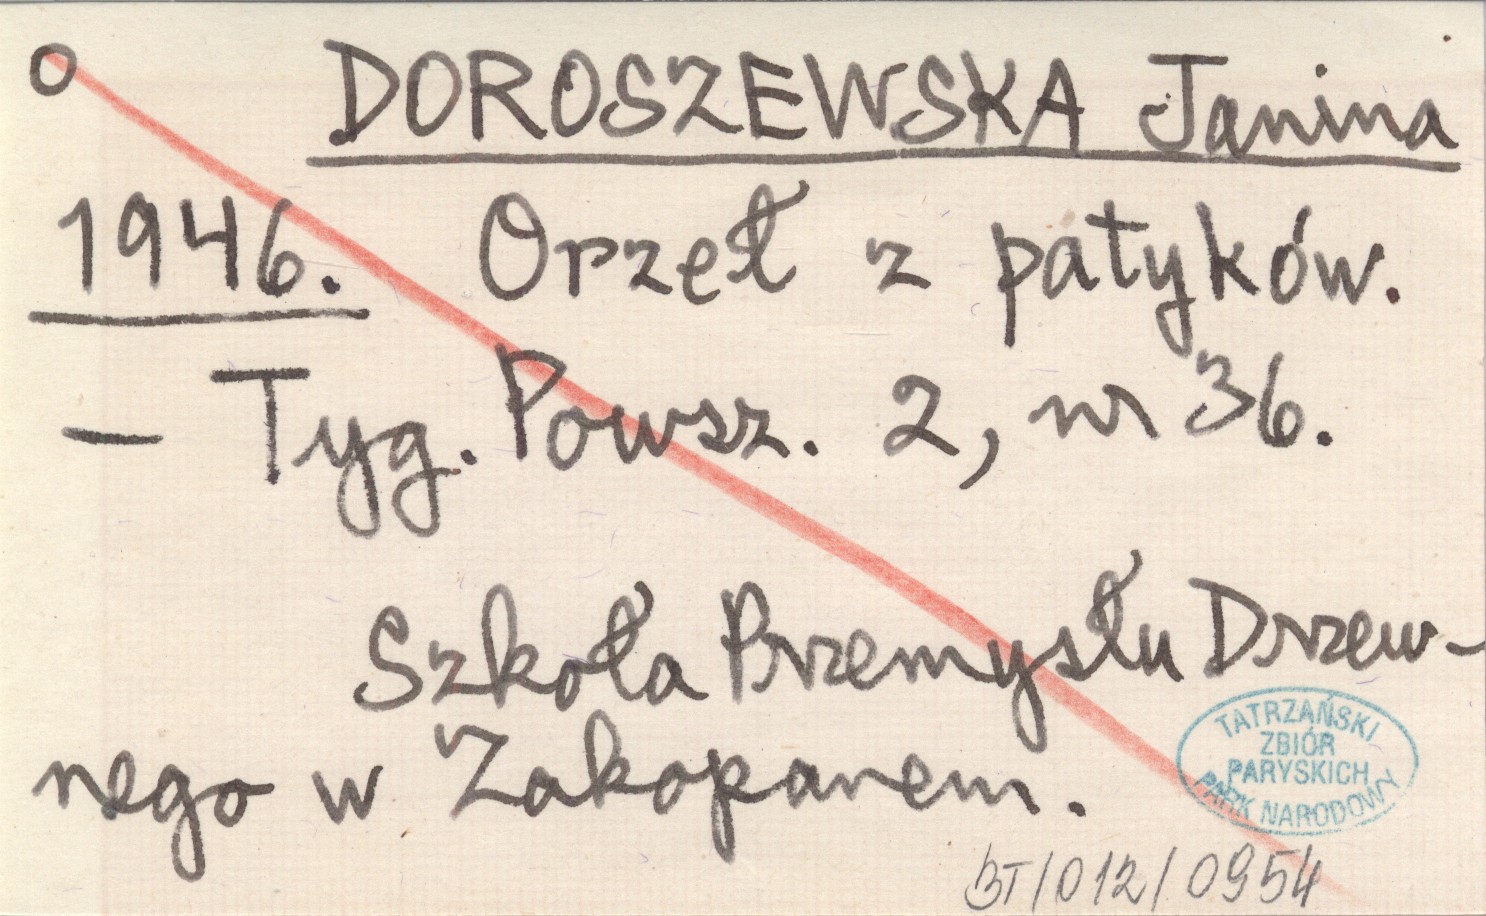 o DOROSZEWSKA Janina
1946. Orzeł z patyków.
– Tyg. Powsz. 2, nr 36.
Szkoła Przemysłu Drzew-
nego w Zakopanem.
TATRZAŃSKI
ZBIÓR
PARYSKICH
PARK NARODOWY
BT/012/0954